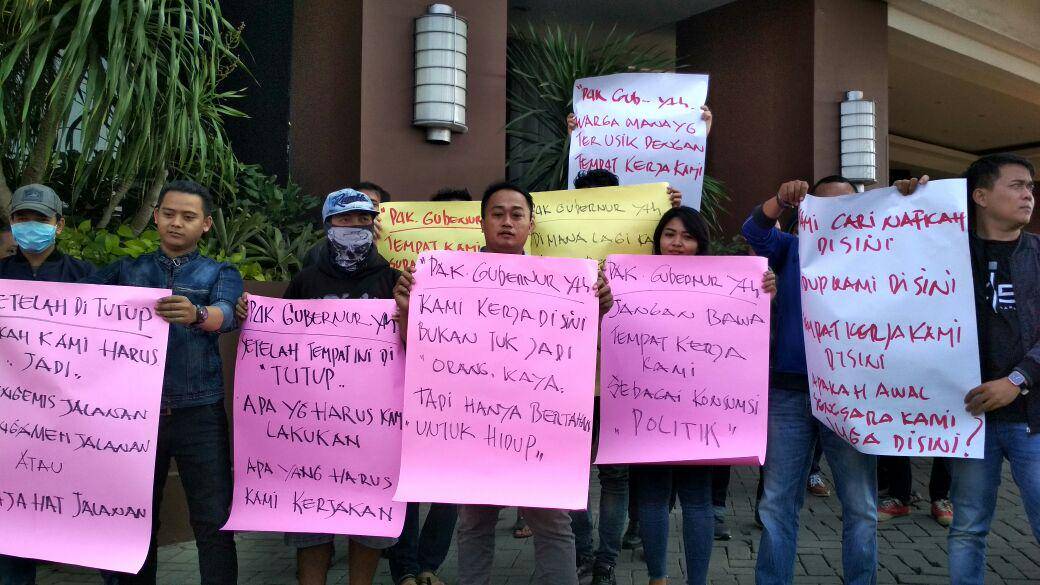 SETELAH DI TUTUP
KAMI HARUS
JADI..
PENGEMIS JALANAN
PENGAMEN JALANAN
ATAU
PENJAHAT JALANAN
PAK GUBERNUR Yth
SETELAH TEMPAT INI DI
"TUTUP..
APA YG HARUS KAMI
LAKUKAN
APA YANG HARUS
KAMI KERJAKAN
"PAK. GUBERNUR Yth
KAMI KERJA DI SINI
BUKAN TUK JADI
"ORANG. KAYA.
TAPI HANYA BERTAHAN
"UNTUK HIDUP"
PAK GUBERNUR Yth
JANGAN BAWA
TEMPAT KERJA
KAMI
SEBAGAI KONSUMSI
"POLITIK"
"PAK. GUBERNUR
TEMPAT KAMI
PAK GUBERNUR Yth
DIMANA LAGI
"PAK GUB.. Yth.
WARGA MANA YG
TERUSIK DENGAN
TEMPAT KERJA KAMI
KAMI CARI NAFKAH
DISINI
HIDUP KAMI DISINI
TEMPAT KERJA KAMI
DISINI
APAKAH AWAL
SENGSARA KAMI
JUGA DISINI?